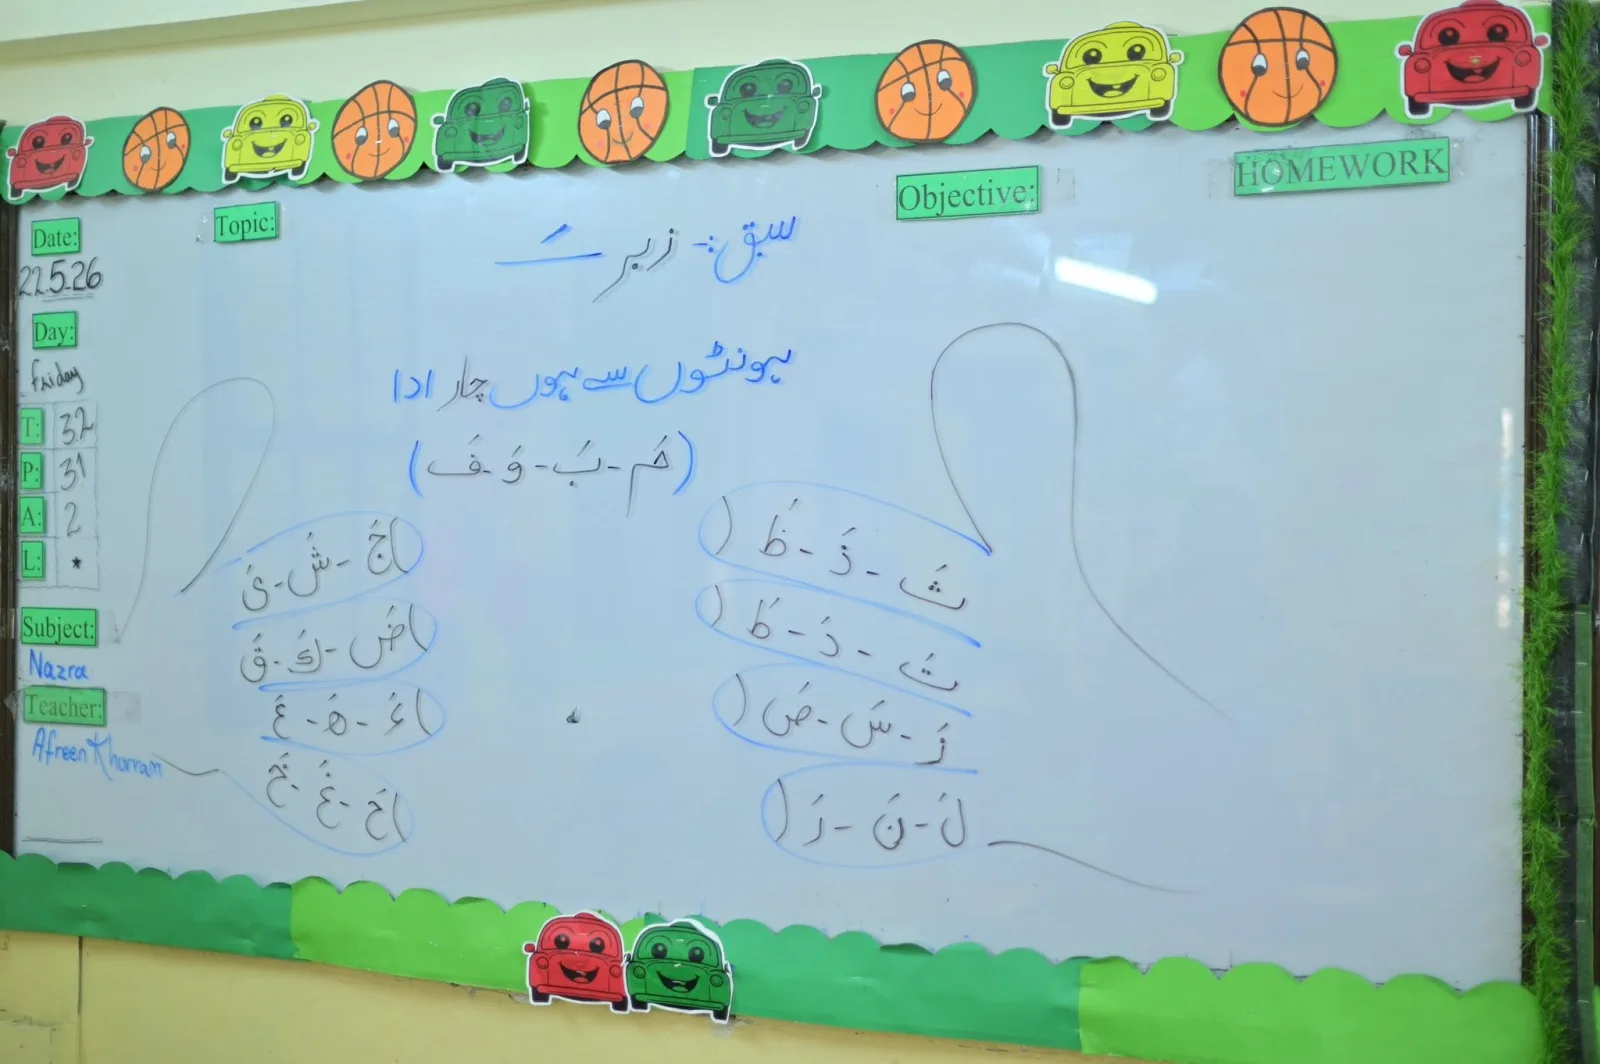 Topic:
Objective:
HOMEWORK
Date:
22.5.26
Day:
Friday
T: 32
P: 31
A: 2
L: *
Subject:
Nazra
Teacher:
Afreen Khurram
سبق :- زبر ـَ
ہونٹوں سے ہوں چار ادا
(مَ - بَ - وَ - فَ)
ثَ - ذَ - ظَ
تَ - دَ - طَ
زَ - سَ - صَ
لَ - نَ - رَ
جَ - شَ - یَ
ضَ - كَ - قَ
ءَ - هَ - عَ
حَ - غَ - خَ